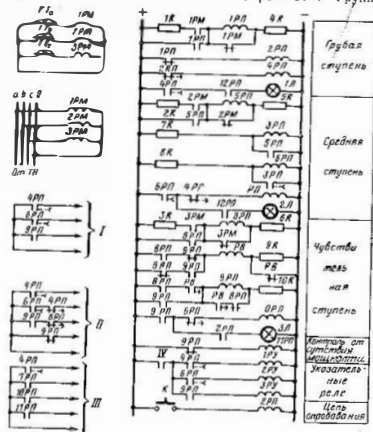 1РМ
2РМ
3РМ
a b c 0
1РМ
2РМ
3РМ
От ТН
4РП
6РП
9РП
I
4РП
6РП 4РП
9РП 6РП
9РП
II
4РП
7РП
10РП
11РП
III
+
−
1К 1РМ 1РП 4К
1РП 1РМ
1РП 2РП
2КП 4РП
4РП 12РП 1Л
2РМ 5РП 5К
2К 5РП 2РМ
7К 3РП
5РП
8К 6РП
3РП
6РП 4РГ РП
12РП 2Л
3К 3РМ 8РП 6К
8РП 3РМ
8РП РВ 9К
8РП 9РП РВ
8РП РВ 9РП 10К
9РП РВ 8РП
9РП 6РП 0РП
2РП 3Л
9РП
IV 4РП 1РУ
6РП 2РУ
К 9РП 3РУ
2РП
Грубая
ступень
Средняя
ступень
Чувстви
тель
ная
ступень
Контроль от
сутствия
мощности
Указатель-
ные
реле
Цепь
опробования